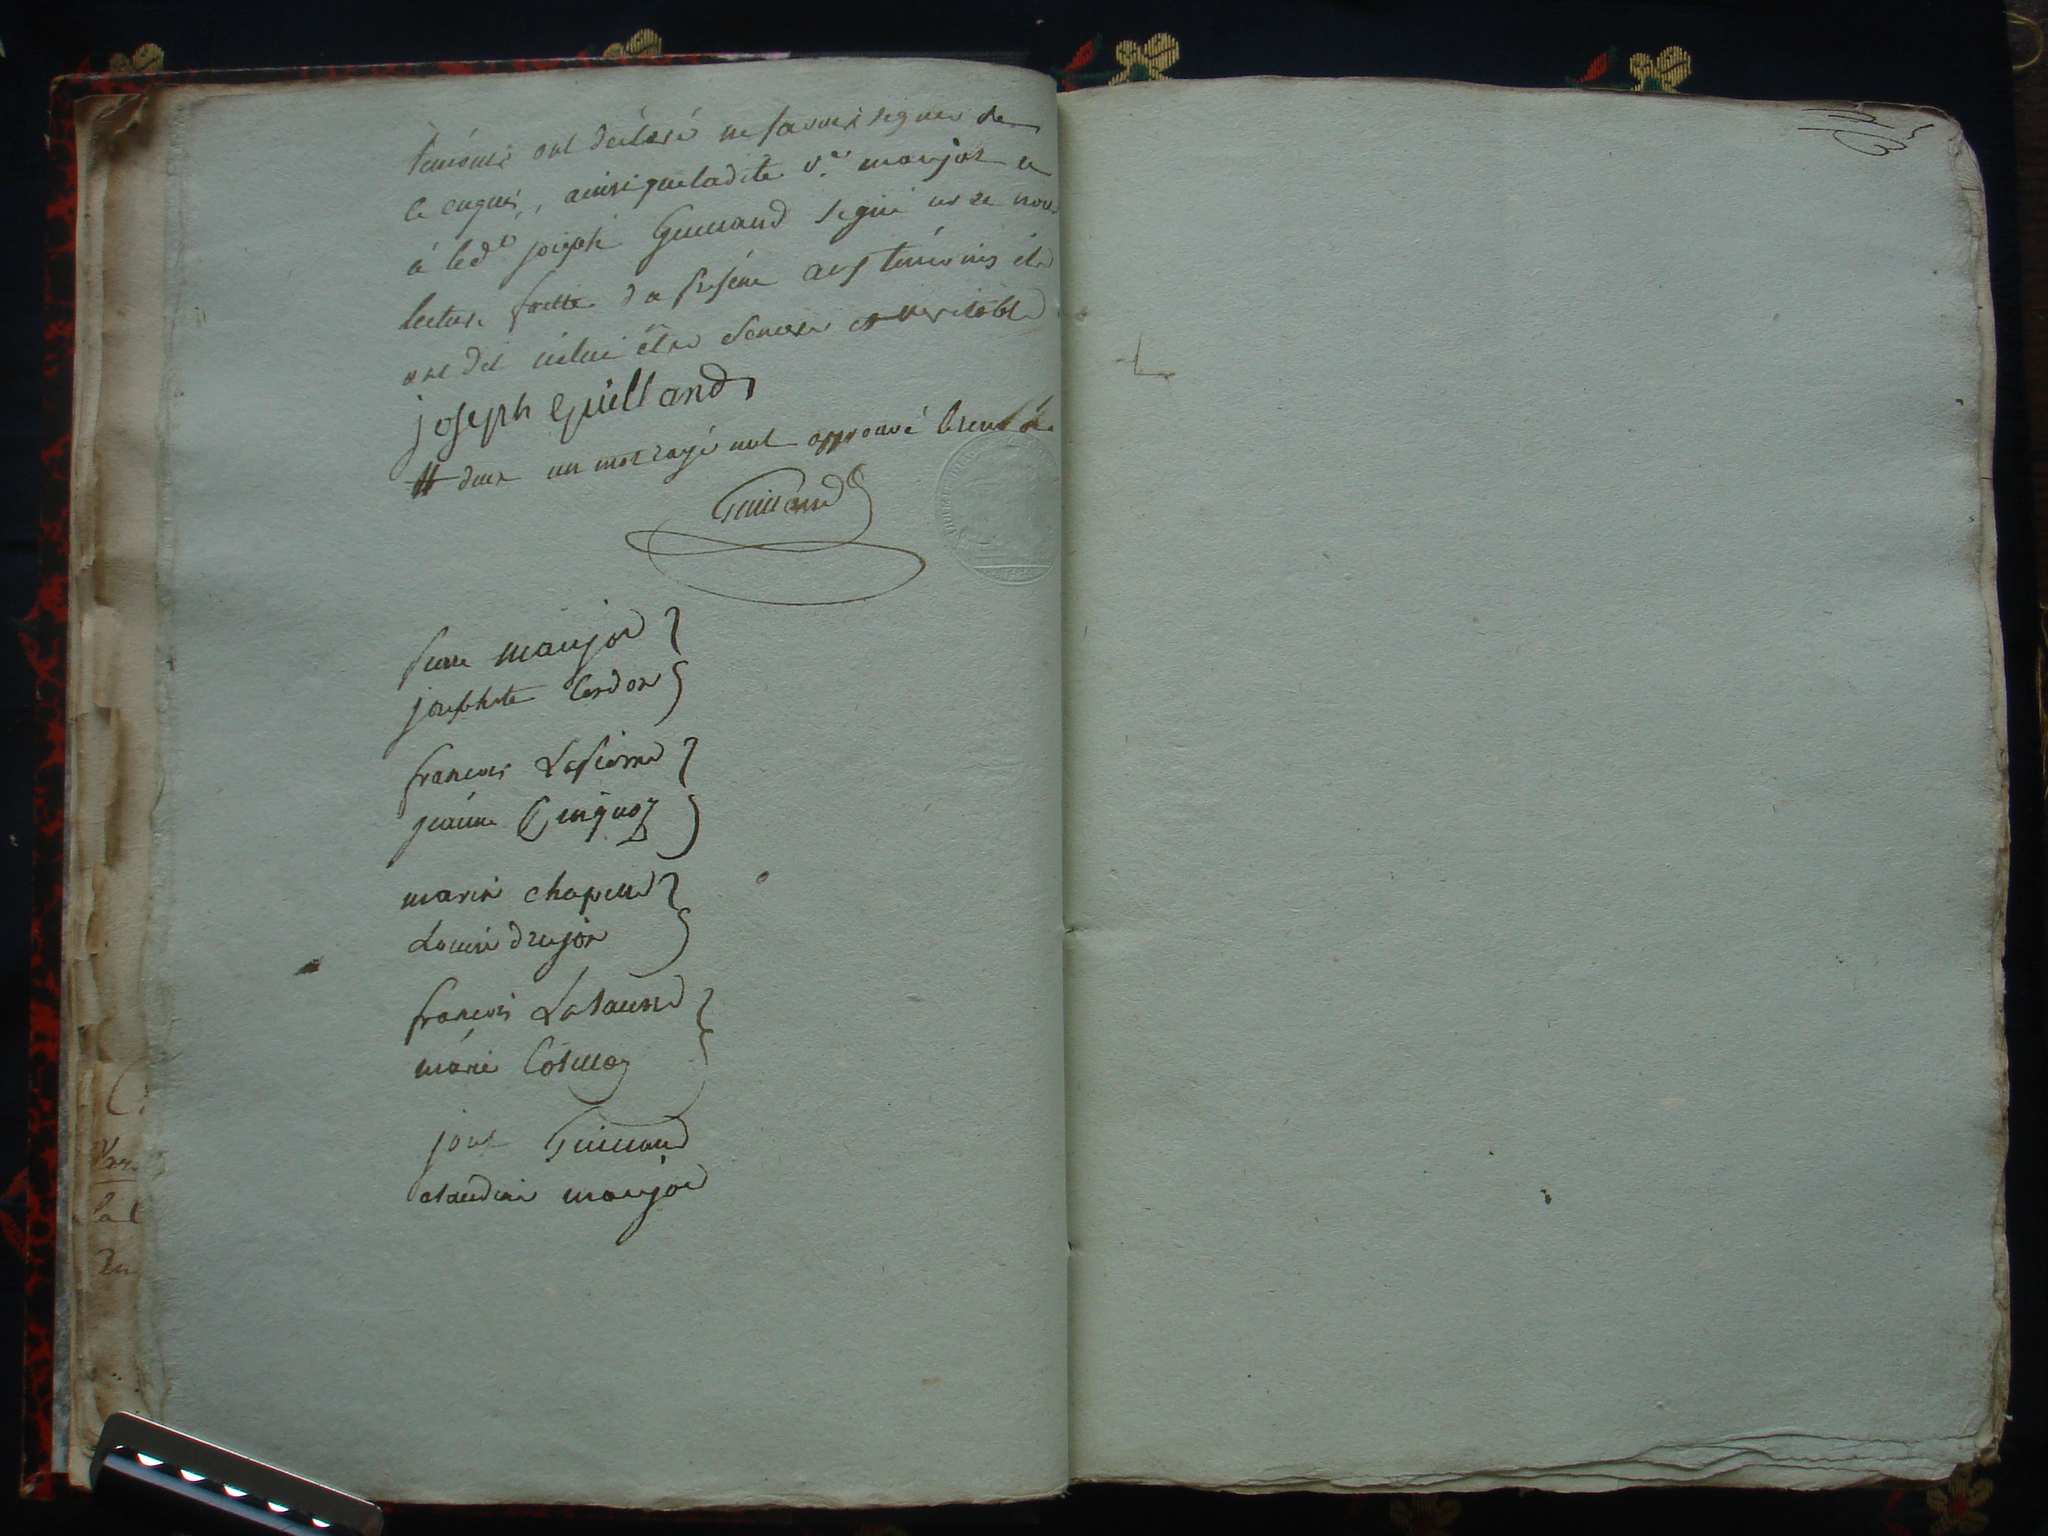 témoins ont déclaré ne savoir signer de
ce enquis, ainsi que ladite v.e maujod et
à led.t joseph Guilland signé avec nous
lecture faitte du présent aux témoins été
ont dit icelui être sincere et veritable
joseph Guilland
deux un mot rayé nul approuvé
Guilland
pierre maujod
josephte Cerdon
francois Lapierre
jeanne Cinquoz
marin chapelle
Louise drujon
francois
marie
jose Guilland
claudine maujod